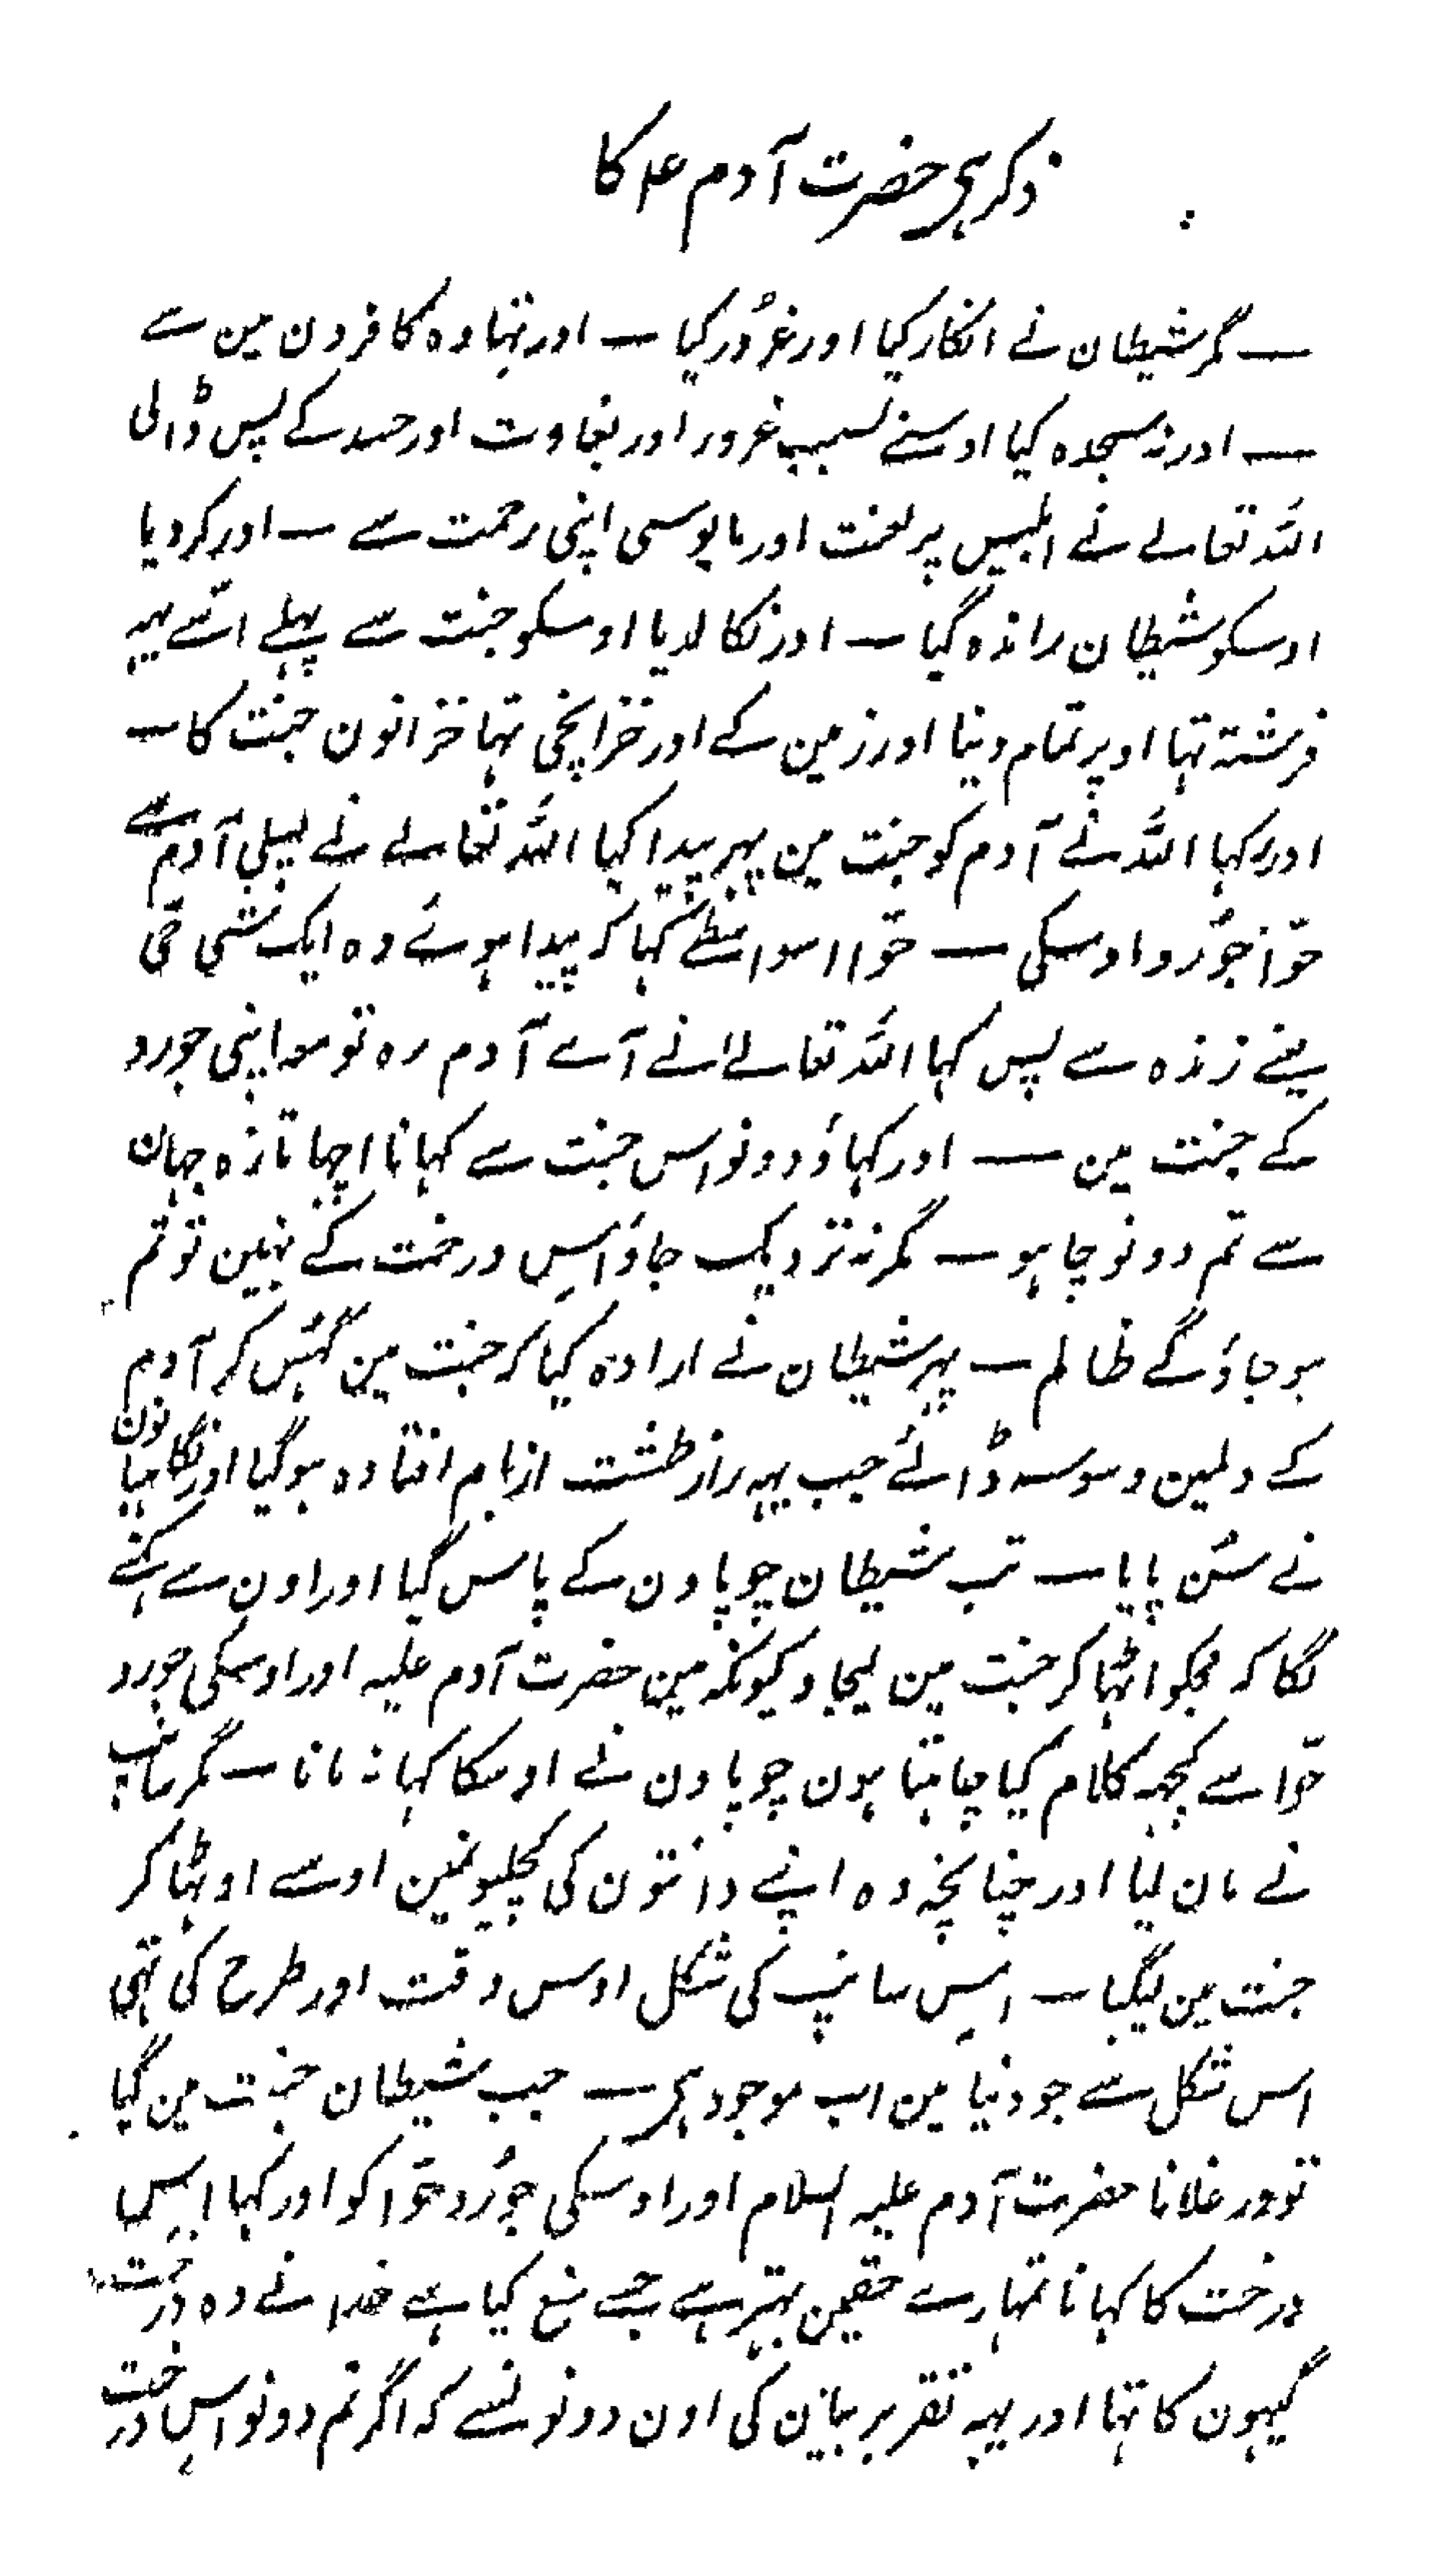 ذکر ہی حضرت آدم ع کا
— مگر شیطان نے انکار کیا اور غرُور کیا — اور تہا وہ کافرون مین سے
— اور نہ سجدہ کیا اوسنے بسبب غرور اور بغاوت اور حسد کے پس ڈالی
اللہ تعالے نے ابلیس پر لعنت اور مایوسی اپنی رحمت سے — اور کر دیا
اوسکو شیطان راندہ گیا — اور نکالدیا اوسکو جنت سے پہلے اسّے یہہ
فرشتہ تہا اوپر تمام دنیا اور زمین کے اور خزانچی تہا خزانون جنت کا —
اور رکہا اللہ نے آدم کو جنت مین پہر پیدا کیا اللہ تعالے نے پسلی آدم سے
حوّا جوُرو اوسکی — حوّا اسواسطے کہا کہ پیدا ہوئے وہ ایک شی حّی
یعنے زندہ سے پس کہا اللہ تعالےٰ نے آے آدم رہ تو معہ اپنی جورو
کے جنت مین — اور کہاؤ دونو اس جنت سے کہانا اچہا تازہ جہان
سے تم دونو چاہو — مگر نہ نزدیک جاؤ اسِ درخت کے نہین تو تم
ہو جاؤ گے ظالم — پہر شیطان نے ارادہ کیا کہ جنت مین گہُس کر آدم
کے دلمین وسوسہ ڈالئے جب یہہ راز طشت از بام افتادہ ہو گیا اور نگاہبانون
نے سُن پایا — تب شیطان چوپاون کے پاس گیا اور اون سے کہنے
لگا کہ مجکو اٹہا کر جنت مین لیجاو کیونکہ مین حضرت آدم علیہ اور اوسکی جورو
حوّا سے کچہہ کلام کیا چاہتا ہون چوپاون نے اوسکا کہا نہ مانا — مگر سانپ
نے مان لیا اور چنانچہ وہ اپنے دانتون کی کچلیونمین اوسے اوٹہا کر
جنت مین لیگیا — اسِ سانپ کی شکل اوس وقت اور طرح کی تہی
اس شکل سے جو دنیا مین اب موجود ہی — جب شیطان جنت مین گیا
تو ورغلانا حضرت آدم علیہ السلام اور اوسکی جوُرو حوّا کو اور کہا اسِ
درخت کا کہانا تمہارے حقمین بہتر ہے جسے منع کیا ہے خدا نے وہ درخت
گیہون کا تہا اور یہہ تقریر بیان کی اون دونونسے کہ اگر تم دونو اسِ درخت